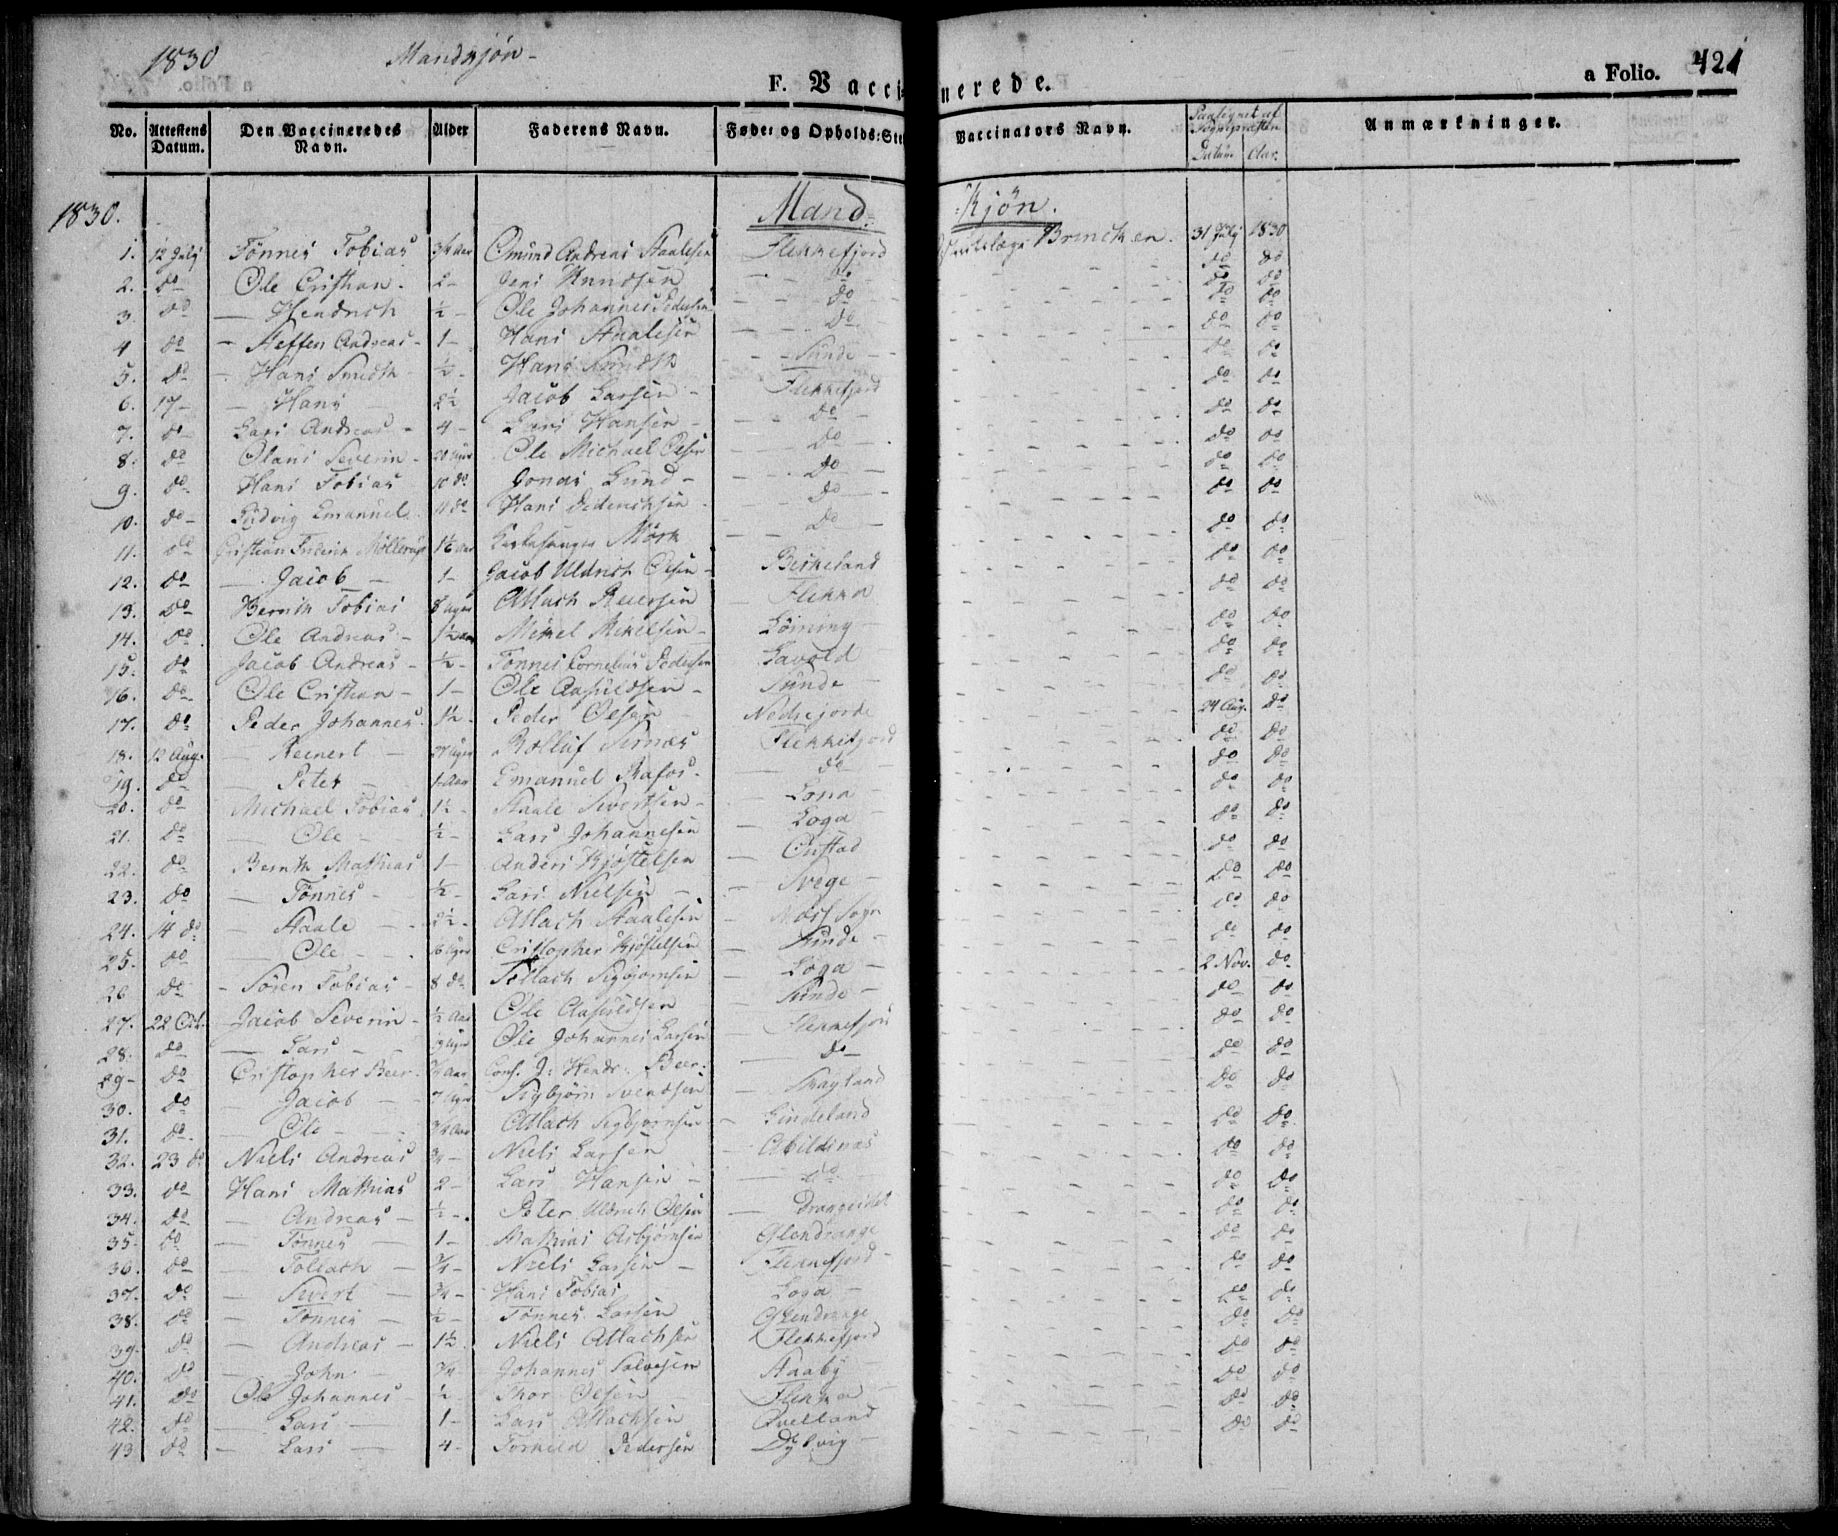 1830 Mandkjön -
F. Vaccinerede. a Folio. 421
No. Attestens Datum. Den Vaccineredes Navn. Alder Faderens Navn. Føde- og Opholds-Ste Vaccinators Navn. Paategnet af Sognepræsten Datum Aar. Anmærkninger.
1830. Mand- Kjön.
1. 12 July Tönnes Tobias 3/4 Aar Omund Andreas Staalesen Flekkefjord Brincken. 31 July 1830
2. do Ole Cristian. 2 - Jens Knudsen do do do
3. do Hendrich ½ - Ole Johannes Pedersen do do do
4 do Steffen Andreas - 1 - Hans Staalesen do do do
5. do Hans Smidth ½ - Hans Smidth Sunde do do
6. 17 - Hans 2½ Jacob Larsen Flekkefjord do do
7. do Lars Andreas - 4 - Lars Hansen do do do
8. do Olaus Severin - 20 Uger Ole Michael Olsen do do do
9. do Hans Tobias 10 do. Jonas Lund - do do do
10. do Ludvig Emanuel 11 do Hans Dederichsen do do do
11. do Cristian Frederik Möllerup 1½ Aar Kirkesanger Mörk do do do
12. do Jacob 1 - Jacob Uldrich Olsen - Birkeland do do
13. do Bernth Tobias 8 Uger Atlach Reiersen Flekka do do
14. do Ole Andreas - 1½ Aar Mikel Mikelsen - Löining do do
15. do Jacob Andreas - ½ - Tönnes Cornelius Pedersen Lavold do do
16. do Ole Cristian - 1 - Ole Aasuldsen - Sunde do do
17. do Peder Johannes. 1½ - Peder Olsen Nedrejorde 24 Aug. do
18. 12 Aug. Reinert 27 Uger Rolluf Sirnæs Flekkefjord do do
19. do Peter 1 Aar Emanuel Rafos. do do do
20. do Michael Tobias 1½ - Staale Sivertsen - Lona do do
21. do Ole ½ - Lars Johannesen Loga do do
22. do Bernth Mathias 1 - Anders Kjöstelsen Oustad do do
23. do Tönnes ½ - Lars Nielsen Svege do do
24. 14 do Staale 2½ - Atlach Staalesen do do
25. do Ole 16 Uger Cristopher Kjöstelsen Sunde do do
26 do Sören Tobias - 8 do Tollach Sigbjørnsen Loga 2 Nov. do
27. 22 Oct. Jacob Severin - ½ Aar Ole Aasuldsen Sunde do do
28. do Lars 9 Uger Ole Johannes Larsen Flekkefjord do do
29 - do Cristopher Beer. 3/4 Aar Cons. J: Hendr: Beer: do do do
30. do Jacob 7 Uger Sigbjörn Svendsen Skagland do do
31. do. Ole 3/4 Aar Atlach Sigbjörnsen Lindeland do do
32. 23 do Niels Andreas 3/4 - Niels Larsen Abildsnæs do do
33. do Hans Mathias 2 - Lars Hansen do do do
34. do Andreas ½ - Peter Uldrich Olsen Drangeidet do do
35 do Tönnes 1 - Mathias Asbjörnsen Glendrange do do
36. do Toliach 3/4 - Niels Larsen Flekkefjord do do
37. do Sivert 3/4 - Hans Tobias Loga do do
38. do Tönnes ½ - Tönnes Larsen Glendrange do do
39. do Andreas 1½ Niels Atlachsen Flekkefjord do do
40. do John 3/4 Johannes Salvesen Staaby do do
41. do Ole Johannes ½ Thor Olsen Flekka do do
42. do Lars 1 - Lars Atlachsen Qvelland do do
43 do Lars 4 - Torkild Pedersen Dybvig